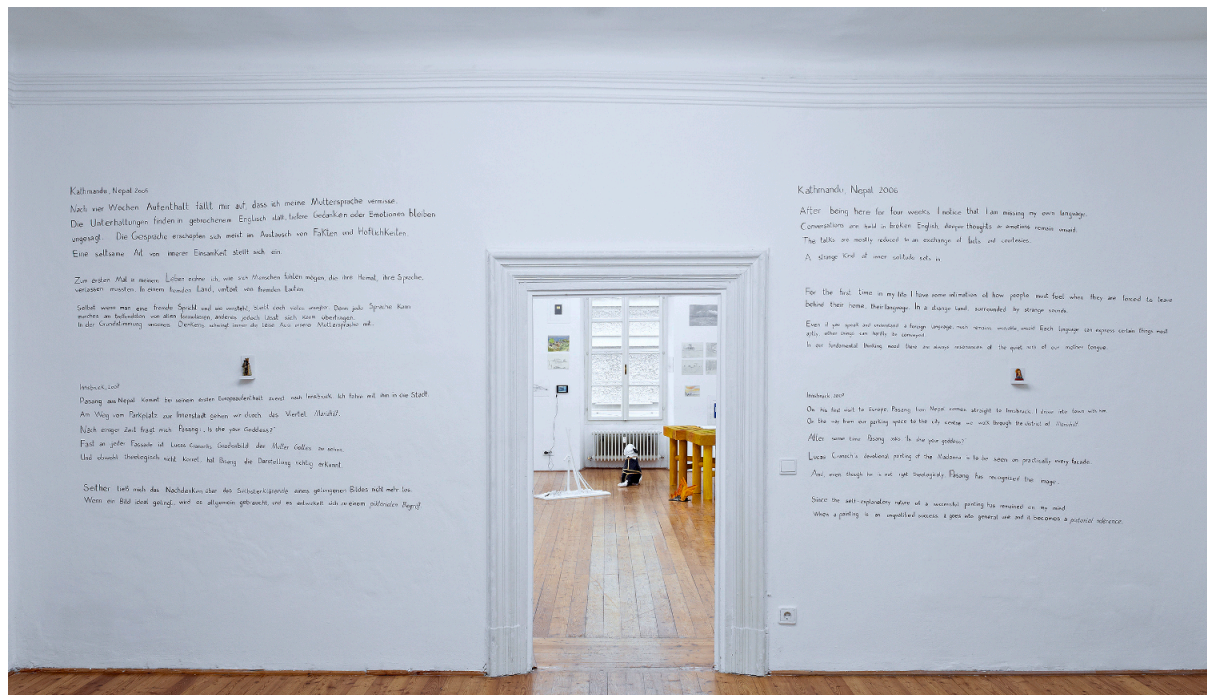 Kathmandu, Nepal 2006
Nach vier Wochen Aufenthalt fällt mir auf, dass ich meine Muttersprache vermisse.
Die Unterhaltungen finden in gebrochenem Englisch statt, tiefere Gedanken oder Emotionen bleiben
ungesagt. Die Gespräche erschöpfen sich meist im Austausch von Fakten und Höflichkeiten.
Eine seltsame Art von innerer Einsamkeit stellt sich ein.
Zum ersten Mal in meinem Leben ahne ich, wie sich Menschen fühlen mögen, die ihre Heimat, ihre Sprache,
verlassen mussten. In einem fremden Land, umtost von fremden Lauten.
Selbst wenn man eine fremde Sprache und sie versteht, bleibt doch vieles Denn jede Sprache kann
manches am anderes jedoch lässt sich kaum übertragen.
In der Grundstimmung unseres Denkens schwingt immer die leise unserer Muttersprache mit.
Innsbruck, 2007
Pasang aus Nepal kommt bei seinem ersten Europaaufenthalt zuerst nach Innsbruck. Ich fahre mit ihm in die Stadt.
Am Weg vom Parkplatz zur Innenstadt gehen wir durch das Viertel Mariahilf.
Nach einiger Zeit fragt mich Pasang: „Is she your Goddess?"
Fast an jeder Fassade ist Lucas Cranachs Gnadenbild der Mutter Gottes zu sehen.
Und obwohl theologisch nicht korrekt, hat Pasang die Darstellung richtig erkannt.
Seither ließ mich das Nachdenken über das Selbsterklärende eines gelungenen Bildes nicht mehr los.
Wenn ein Bild ideal gelingt, wird es allgemein gebraucht und es entwickelt sich zu einem piktoralen Begriff.
Kathmandu, Nepal 2006
After being here for four weeks I notice that I am missing my own language.
Conversations are held in broken English, deeper thoughts or emotions remain unsaid.
The talks are mostly reduced to an exchange of facts and courtesies.
A strange kind of inner solitude sets in.
For the first time in my life I have some intimation of how people must feel when they are forced to leave
behind their home, their language. In a strange land, surrounded by strange sounds.
Even if you speak and understand a foreign language, much remains Each language can express certain things most
aptly, other things can hardly be conveyed.
In our fundamental thinking mood there are always resonances of the quiet of our mother tongue.
Innsbruck 2007
On his first visit to Europe, Pasang from Nepal comes straight to Innsbruck. I drive into town with him.
On the way from our parking space to the city centre we walk through the district of Mariahilf.
After some time Pasang asks: Is she your goddess?
Lucas Cranach's devotional painting of the Madonna is to be seen on practically every facade.
And, even though he is not right theologically, Pasang has recognised the image.
Since the self-explanatory nature of a successful painting has remained on my mind.
When a painting is an unqualified success it goes into general use and it becomes a pictorial reference.